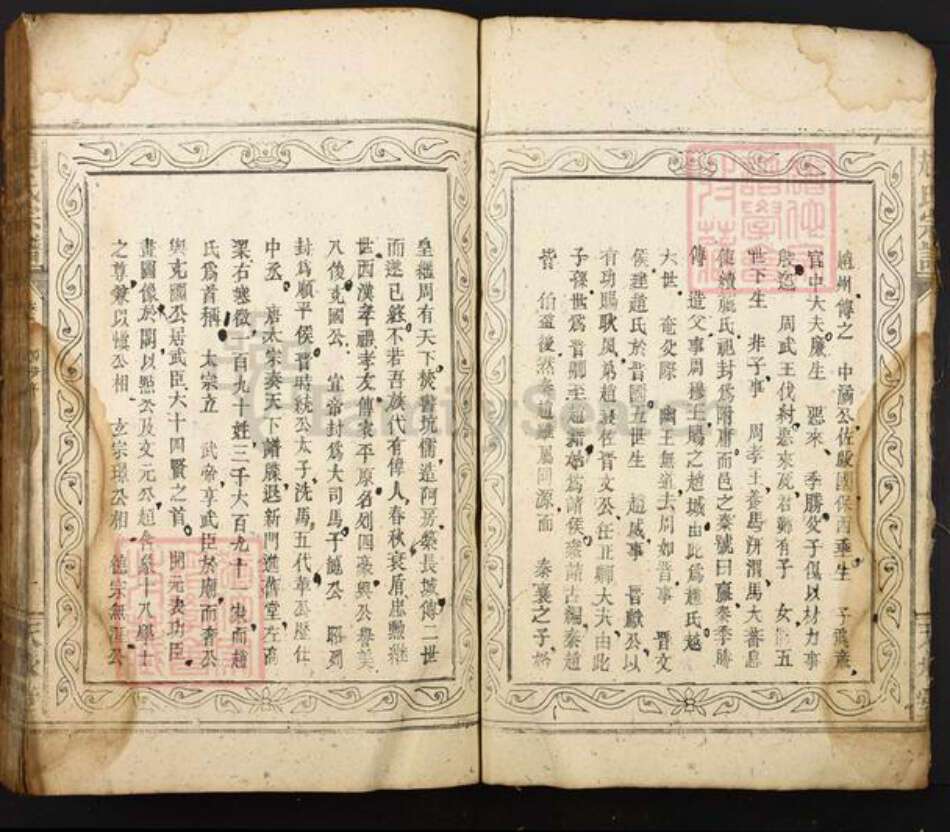 趙州傳之 中滿公佐殷國保西垂生 子飛廉
官中大夫廉生 惡來 季勝父子俱以材力事
殷迄 周武王伐紂惡來死君難有子 女 五
世下生 非子事 周孝王養馬汧渭馬大蕃息
使續嬴氏祀封為附庸而邑之秦號曰嬴秦季勝
傳 造父事周穆王賜之趙城由此為趙氏越
六世 奄父際 幽王無道去周如晉事 晉文
侯建趙氏於晉國五世生 趙夙事 晉獻公以
有功賜耿夙弟趙衰佐晉文公任正卿大夫由此
子孫世為晉卿至趙籍始為諸侯 諸古編秦趙
皆 伯益後然秦趙雖屬同源而 秦襄之子孫
皇繼周有天下焚書坑儒造阿房築長城傳二世
而遂已終不若吾族代有偉人春秋衰盾忠勲繼
世西漢孝禮孝友傳家平原名列四豪興公譽美
八後充國公 宣帝封為大司馬子 公 昭烈
封為順平侯晉時統公太子洗馬五代 公歷仕
中丞 唐太宗奏天下譜牒退新門進舊堂左高
梁右寒微一百九十姓三千六百九十一家而趙
氏為首稱 太宗立 武帝享武臣於廟而奢公
與充國公居武臣六十四賢之首 開元表功臣
畫圖像於閣以 公及文元公趙 十八學士
之尊兼以憬公相 玄宗璟公相 德宗無 公
氏宗譜
天水堂
FamilySearch